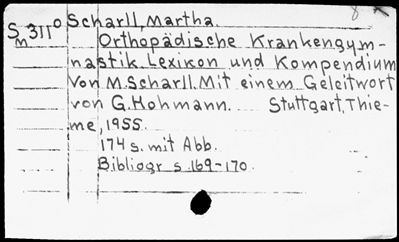 S 311° Scharll, Martha.
M Orthopädische Krankengym-
nastik. Lexikon und Kompendium
von M. Scharll. Mit einem Geleitwort
von G. Hohmann. Stuttgart, Thie-
me, 1955.
174 s. mit Abb.
Bibliogr s. 169-170.